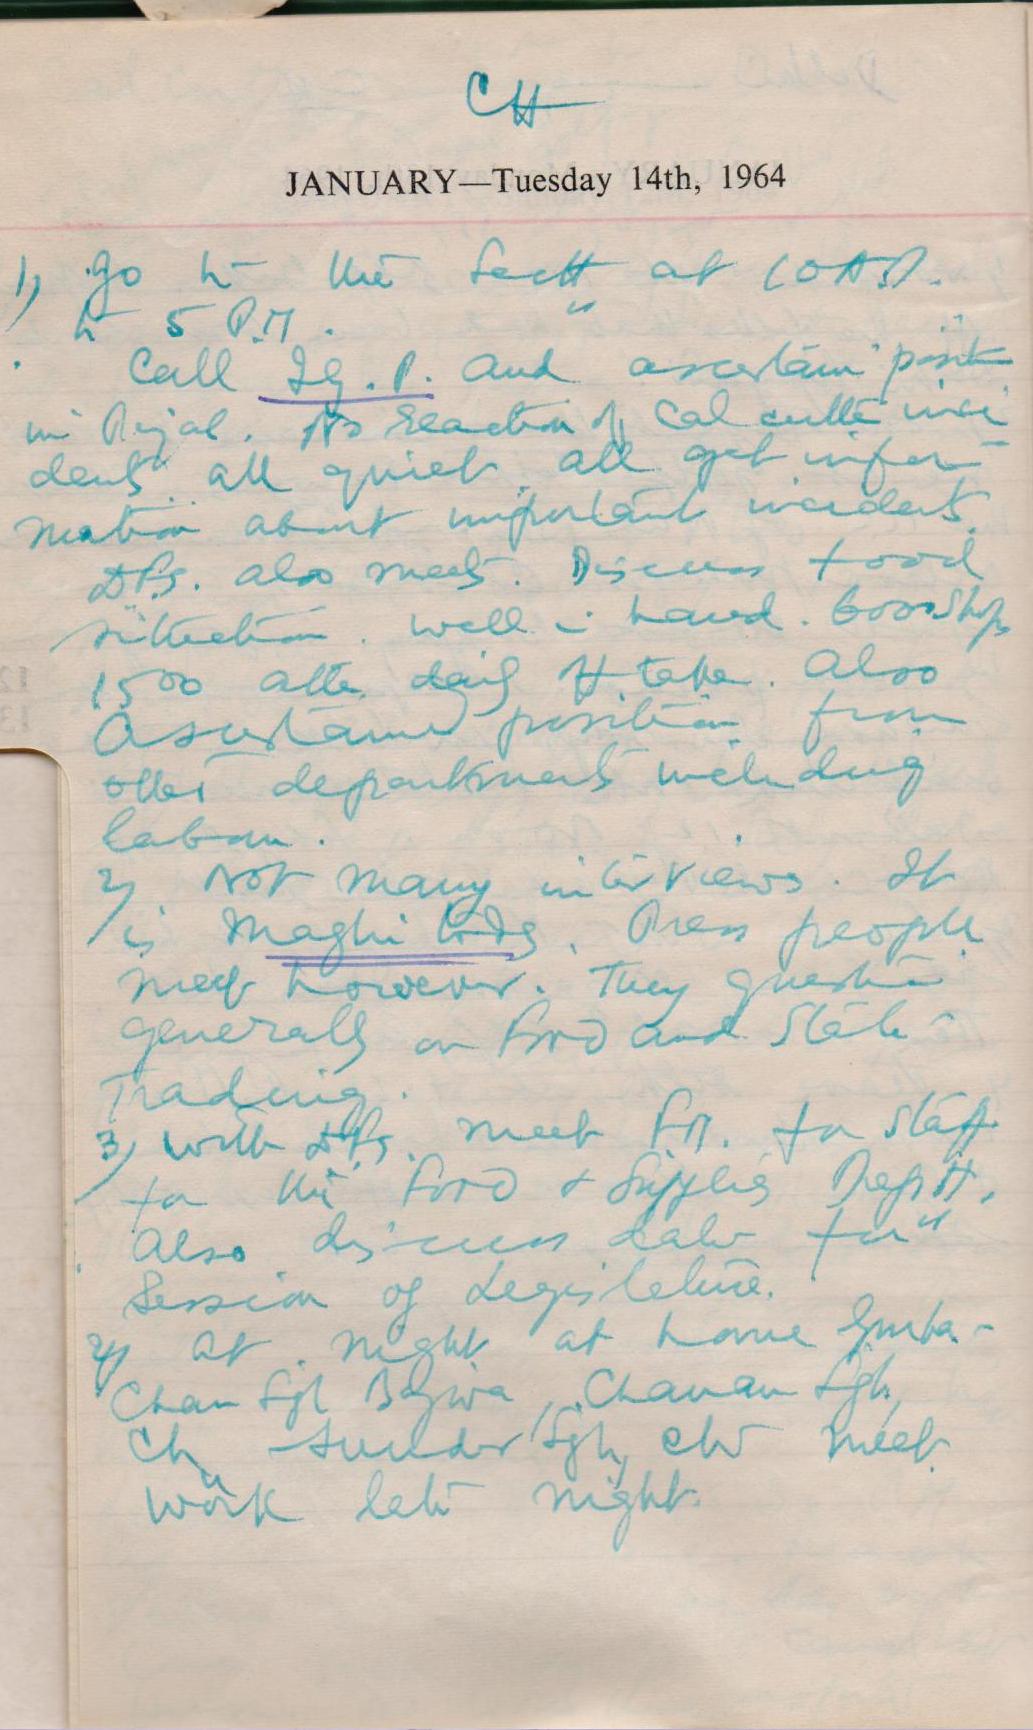 CH
JANUARY—Tuesday 14th, 1964
1) go to the Sectt at 10 A.M.
to 5 P.M.
Call I.G.P. and ascertain posit
in Punjab. No Reaction of Calcutta inci
dents. all quiet. all get infor-
mation about important incidents.
D.F.S. also meets. Discuss food
situation. Well in hand.
1500 atta daily. Also
Ascertained position from
other departments including
labour.
2) Not many interviews. It
is Maghi today. Press people
meet however. They question
generally on Food and State
Trading.
3) With D.F.S. meet F.M. for Staff
for the Food & Supplies Deptt.
Also discuss date for
Session of Legislature.
4) At night at home Gurba-
chan Sgh Bajwa, Chanan Sgh,
Ch Sunder Sgh, etc meet.
Work late night.